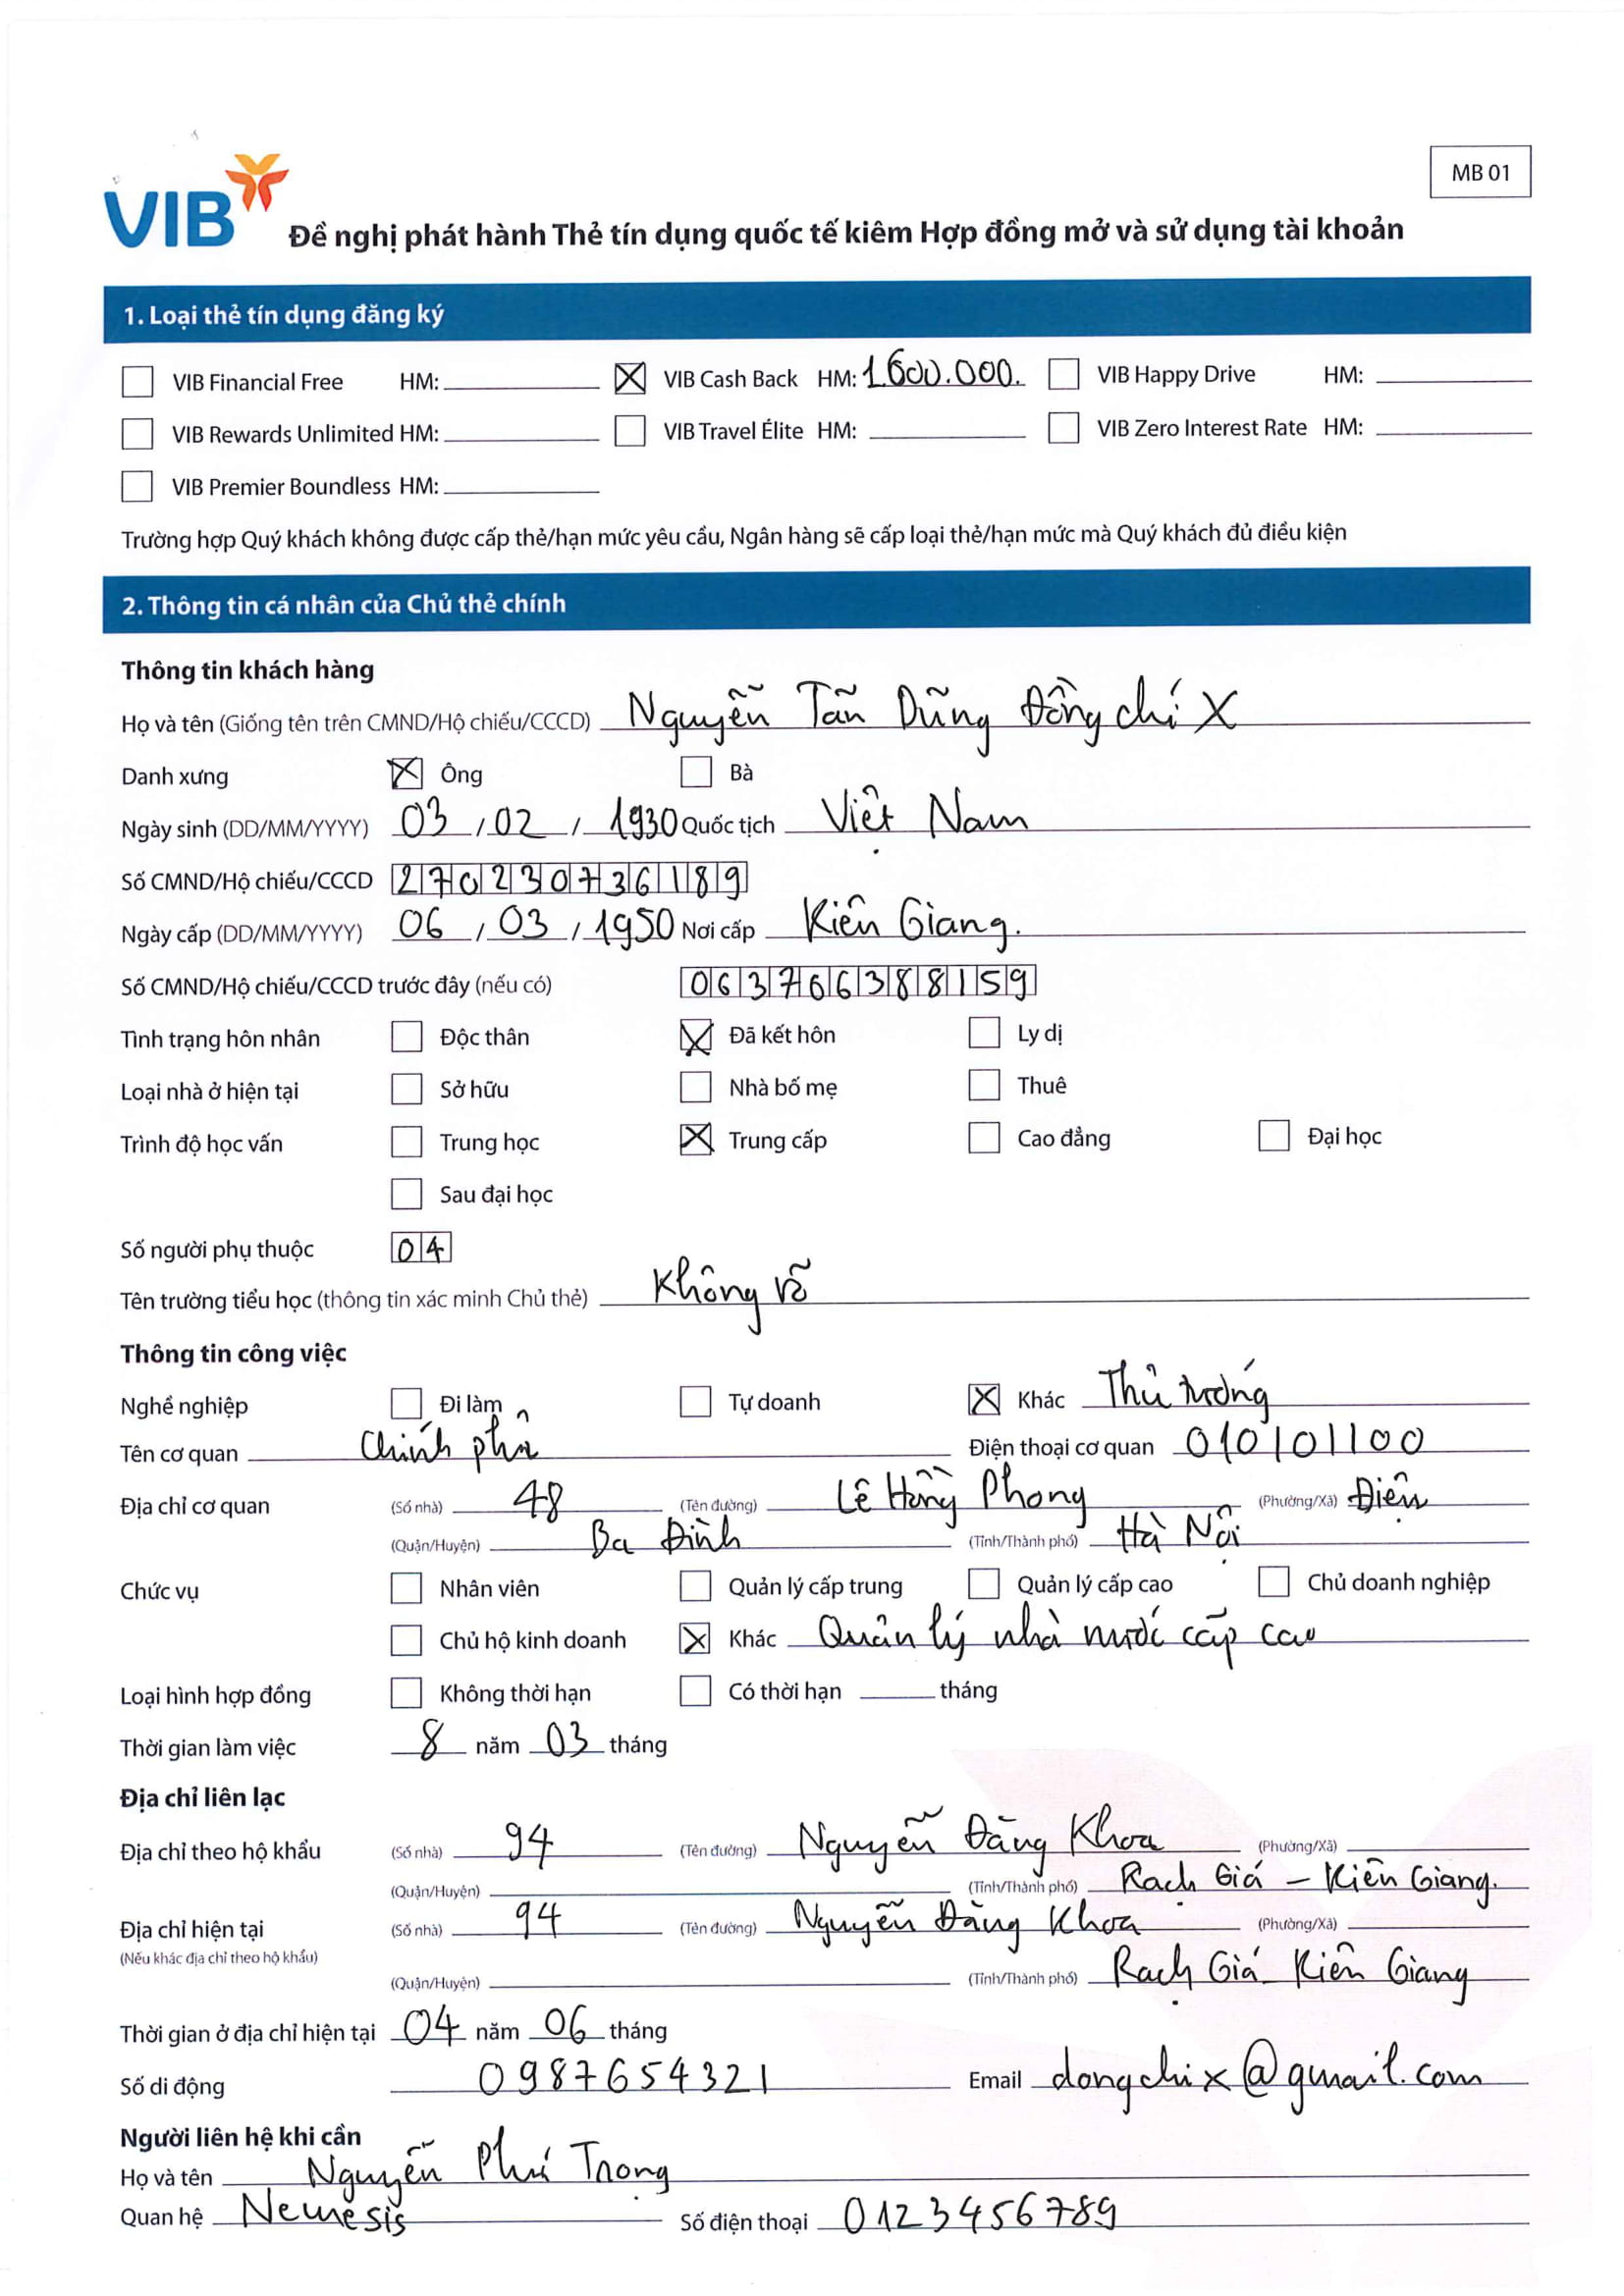 MB 01
VIB
Đề nghị phát hành Thẻ tín dụng quốc tế kiêm Hợp đồng mở và sử dụng tài khoản
1. Loại thẻ tín dụng đăng ký
VIB Financial Free HM: VIB Cash Back HM: 1.600.000. VIB Happy Drive HM:
VIB Rewards Unlimited HM: VIB Travel Élite HM: VIB Zero Interest Rate HM:
VIB Premier Boundless HM:
Trường hợp Quý khách không được cấp thẻ/hạn mức yêu cầu, Ngân hàng sẽ cấp loại thẻ/hạn mức mà Quý khách đủ điều kiện
2. Thông tin cá nhân của Chủ thẻ chính
Thông tin khách hàng
Họ và tên (Giống tên trên CMND/Hộ chiếu/CCCD) Nguyễn Tấn Dũng Đồng chí X
Danh xưng Ông Bà
Ngày sinh (DD/MM/YYYY) 03 / 02 / 1930 Quốc tịch Việt Nam
Số CMND/Hộ chiếu/CCCD 270230736189
Ngày cấp (DD/MM/YYYY) 06 / 03 / 1950 Nơi cấp Kiên Giang.
Số CMND/Hộ chiếu/CCCD trước đây (nếu có) 063766388159
Tình trạng hôn nhân Độc thân Đã kết hôn Ly dị
Loại nhà ở hiện tại Sở hữu Nhà bố mẹ Thuê
Trình độ học vấn Trung học Trung cấp Cao đẳng Đại học
Sau đại học
Số người phụ thuộc 04
Tên trường tiểu học (thông tin xác minh Chủ thẻ) Không rõ
Thông tin công việc
Nghề nghiệp Đi làm Tự doanh Khác Thủ tướng
Tên cơ quan Chính phủ Điện thoại cơ quan 010101100
Địa chỉ cơ quan (Số nhà) 48 (Tên đường) Lê Hồng Phong (Phường/Xã) Điện
(Quận/Huyện) Ba Đình (Tỉnh/Thành phố) Hà Nội
Chức vụ Nhân viên Quản lý cấp trung Quản lý cấp cao Chủ doanh nghiệp
Chủ hộ kinh doanh Khác Quản lý nhà nước cấp cao
Loại hình hợp đồng Không thời hạn Có thời hạn tháng
Thời gian làm việc 8 năm 03 tháng
Địa chỉ liên lạc
Địa chỉ theo hộ khẩu (Số nhà) 94 (Tên đường) Nguyễn Đăng Khoa (Phường/Xã)
(Quận/Huyện) (Tỉnh/Thành phố) Rạch Giá – Kiên Giang.
Địa chỉ hiện tại (Số nhà) 94 (Tên đường) Nguyễn Đăng Khoa (Phường/Xã)
(Nếu khác địa chỉ theo hộ khẩu)
(Quận/Huyện) (Tỉnh/Thành phố) Rạch Giá - Kiên Giang
Thời gian ở địa chỉ hiện tại 04 năm 06 tháng
Số di động 0987654321 Email dongchix@gmail.com
Người liên hệ khi cần
Họ và tên Nguyễn Phú Trọng
Quan hệ Nemesis Số điện thoại 0123456789